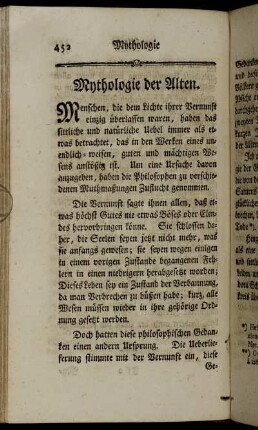 452 Mythologie
Mythologie der Alten.
Menschen, die dem Lichte ihrer Vernunft
einzig überlassen waren, haben das
sittliche und natürliche Uebel immer als et-
was betrachtet, das in den Werken eines un-
endlich-weisen, guten und mächtigen We-
sens anstößig ist. Um eine Ursache davon
anzugeben, haben die Philosophen zu verschie-
denen Muthmaßungen Zuflucht genommen.
Die Vernunft sagte ihnen allen, daß et-
was höchst Gutes nie etwas Böses oder Elen-
des hervorbringen könne. Sie schlossen da-
her, die Seelen seyen jetzt nicht mehr, was
sie anfangs gewesen; sie seyen wegen einigen
in einem vorigen Zustande begangenen Feh-
lern in einen niedrigern herabgesetzt worden;
Dieses Leben sey ein Zustand der Verbannung,
da man Verbrechen zu büßen habe; kurz, alle
Wesen müssen wieder in ihre gehörige Ord-
nung gesetzt werden.
Doch hatten diese philosophischen Gedan-
ken einen andern Ursprung. Die Ueberlie-
ferung stimmte mit der Vernunft ein, diese
Ge-